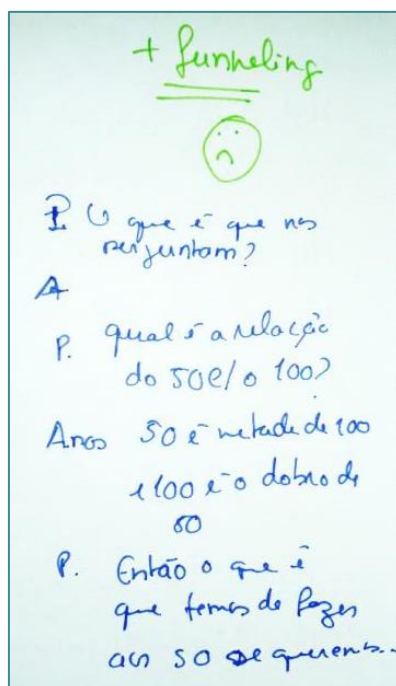 + funneling
P O que é que nos
perguntam?
A
P. qual é a relação
do 50 e/ o 100?
Anos 50 é metade de 100
e 100 é o dobro de
50
P. Então o que é
que temos de fazer
aos 50 se queremos...